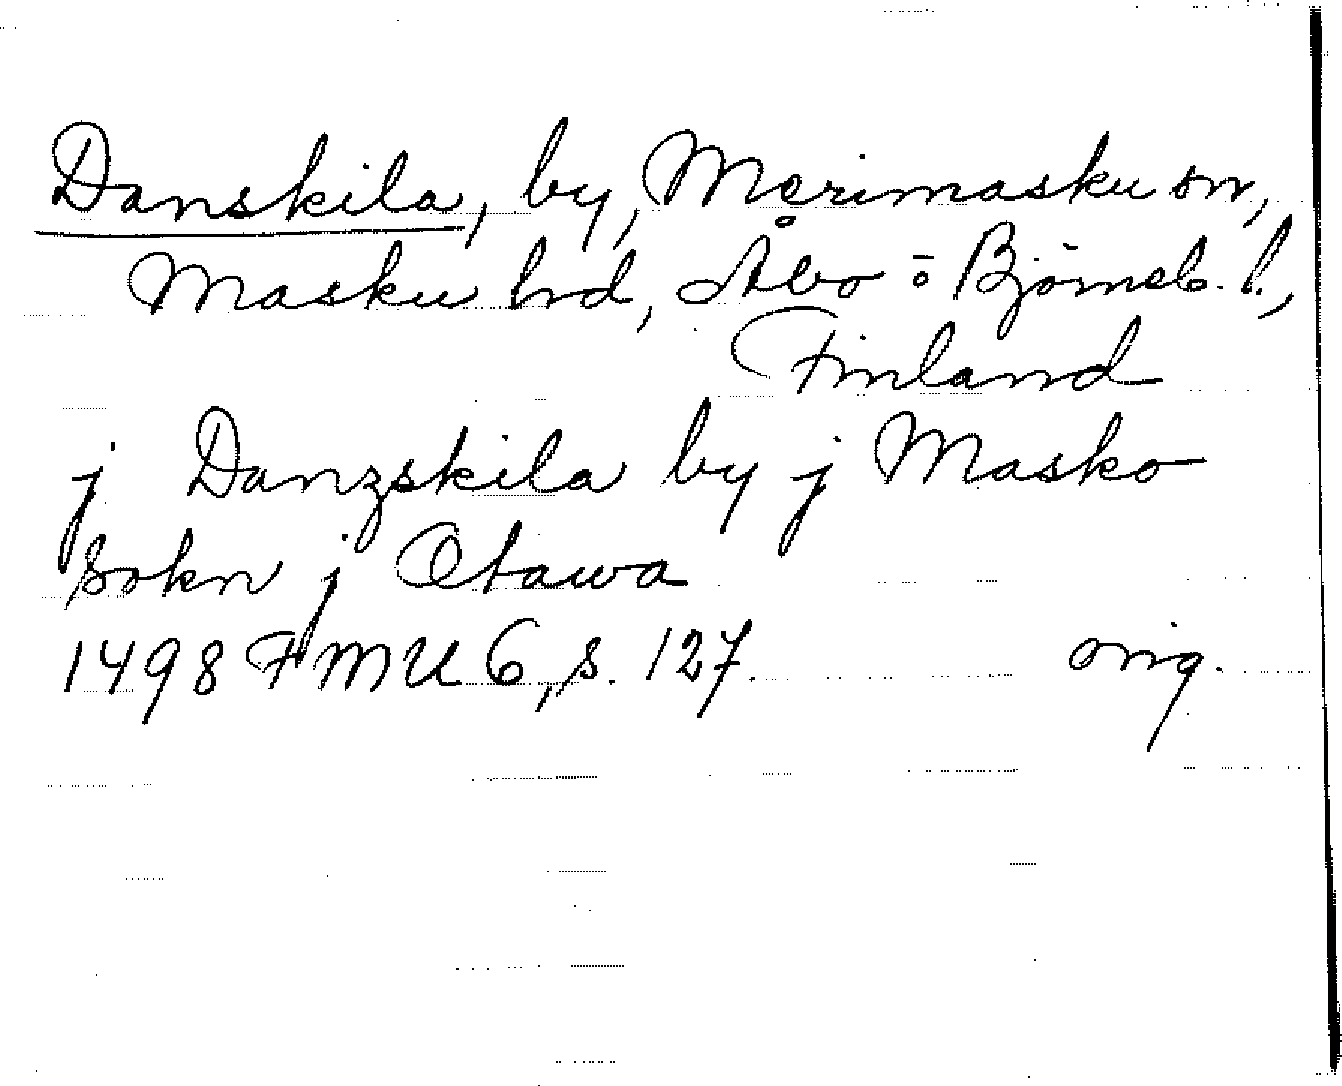 Danskila, by, Merimasku sn,
Masku hd, Åbo o Björneb. l.,
Finland
j Danzskila by j Masko
sokn j Obawa
1498 FMU 6, s. 127. orig.